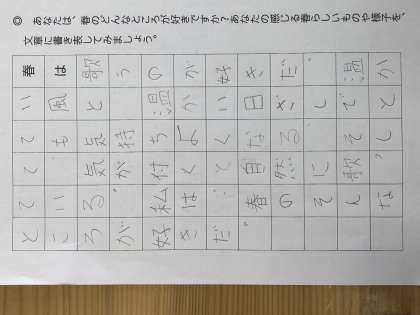 ◎ あなたは、春のどんなところが好きですか？あなたの感じる春らしいものや様子を、
文章に書き表してみましょう。
春は歌うのが好きだ。温か
い風と温かい日ざしでと
ても気持ちよくなる。そし
て、気が付くと自然に歌っ
ている。私は、春のそんな
ところが好きだ。